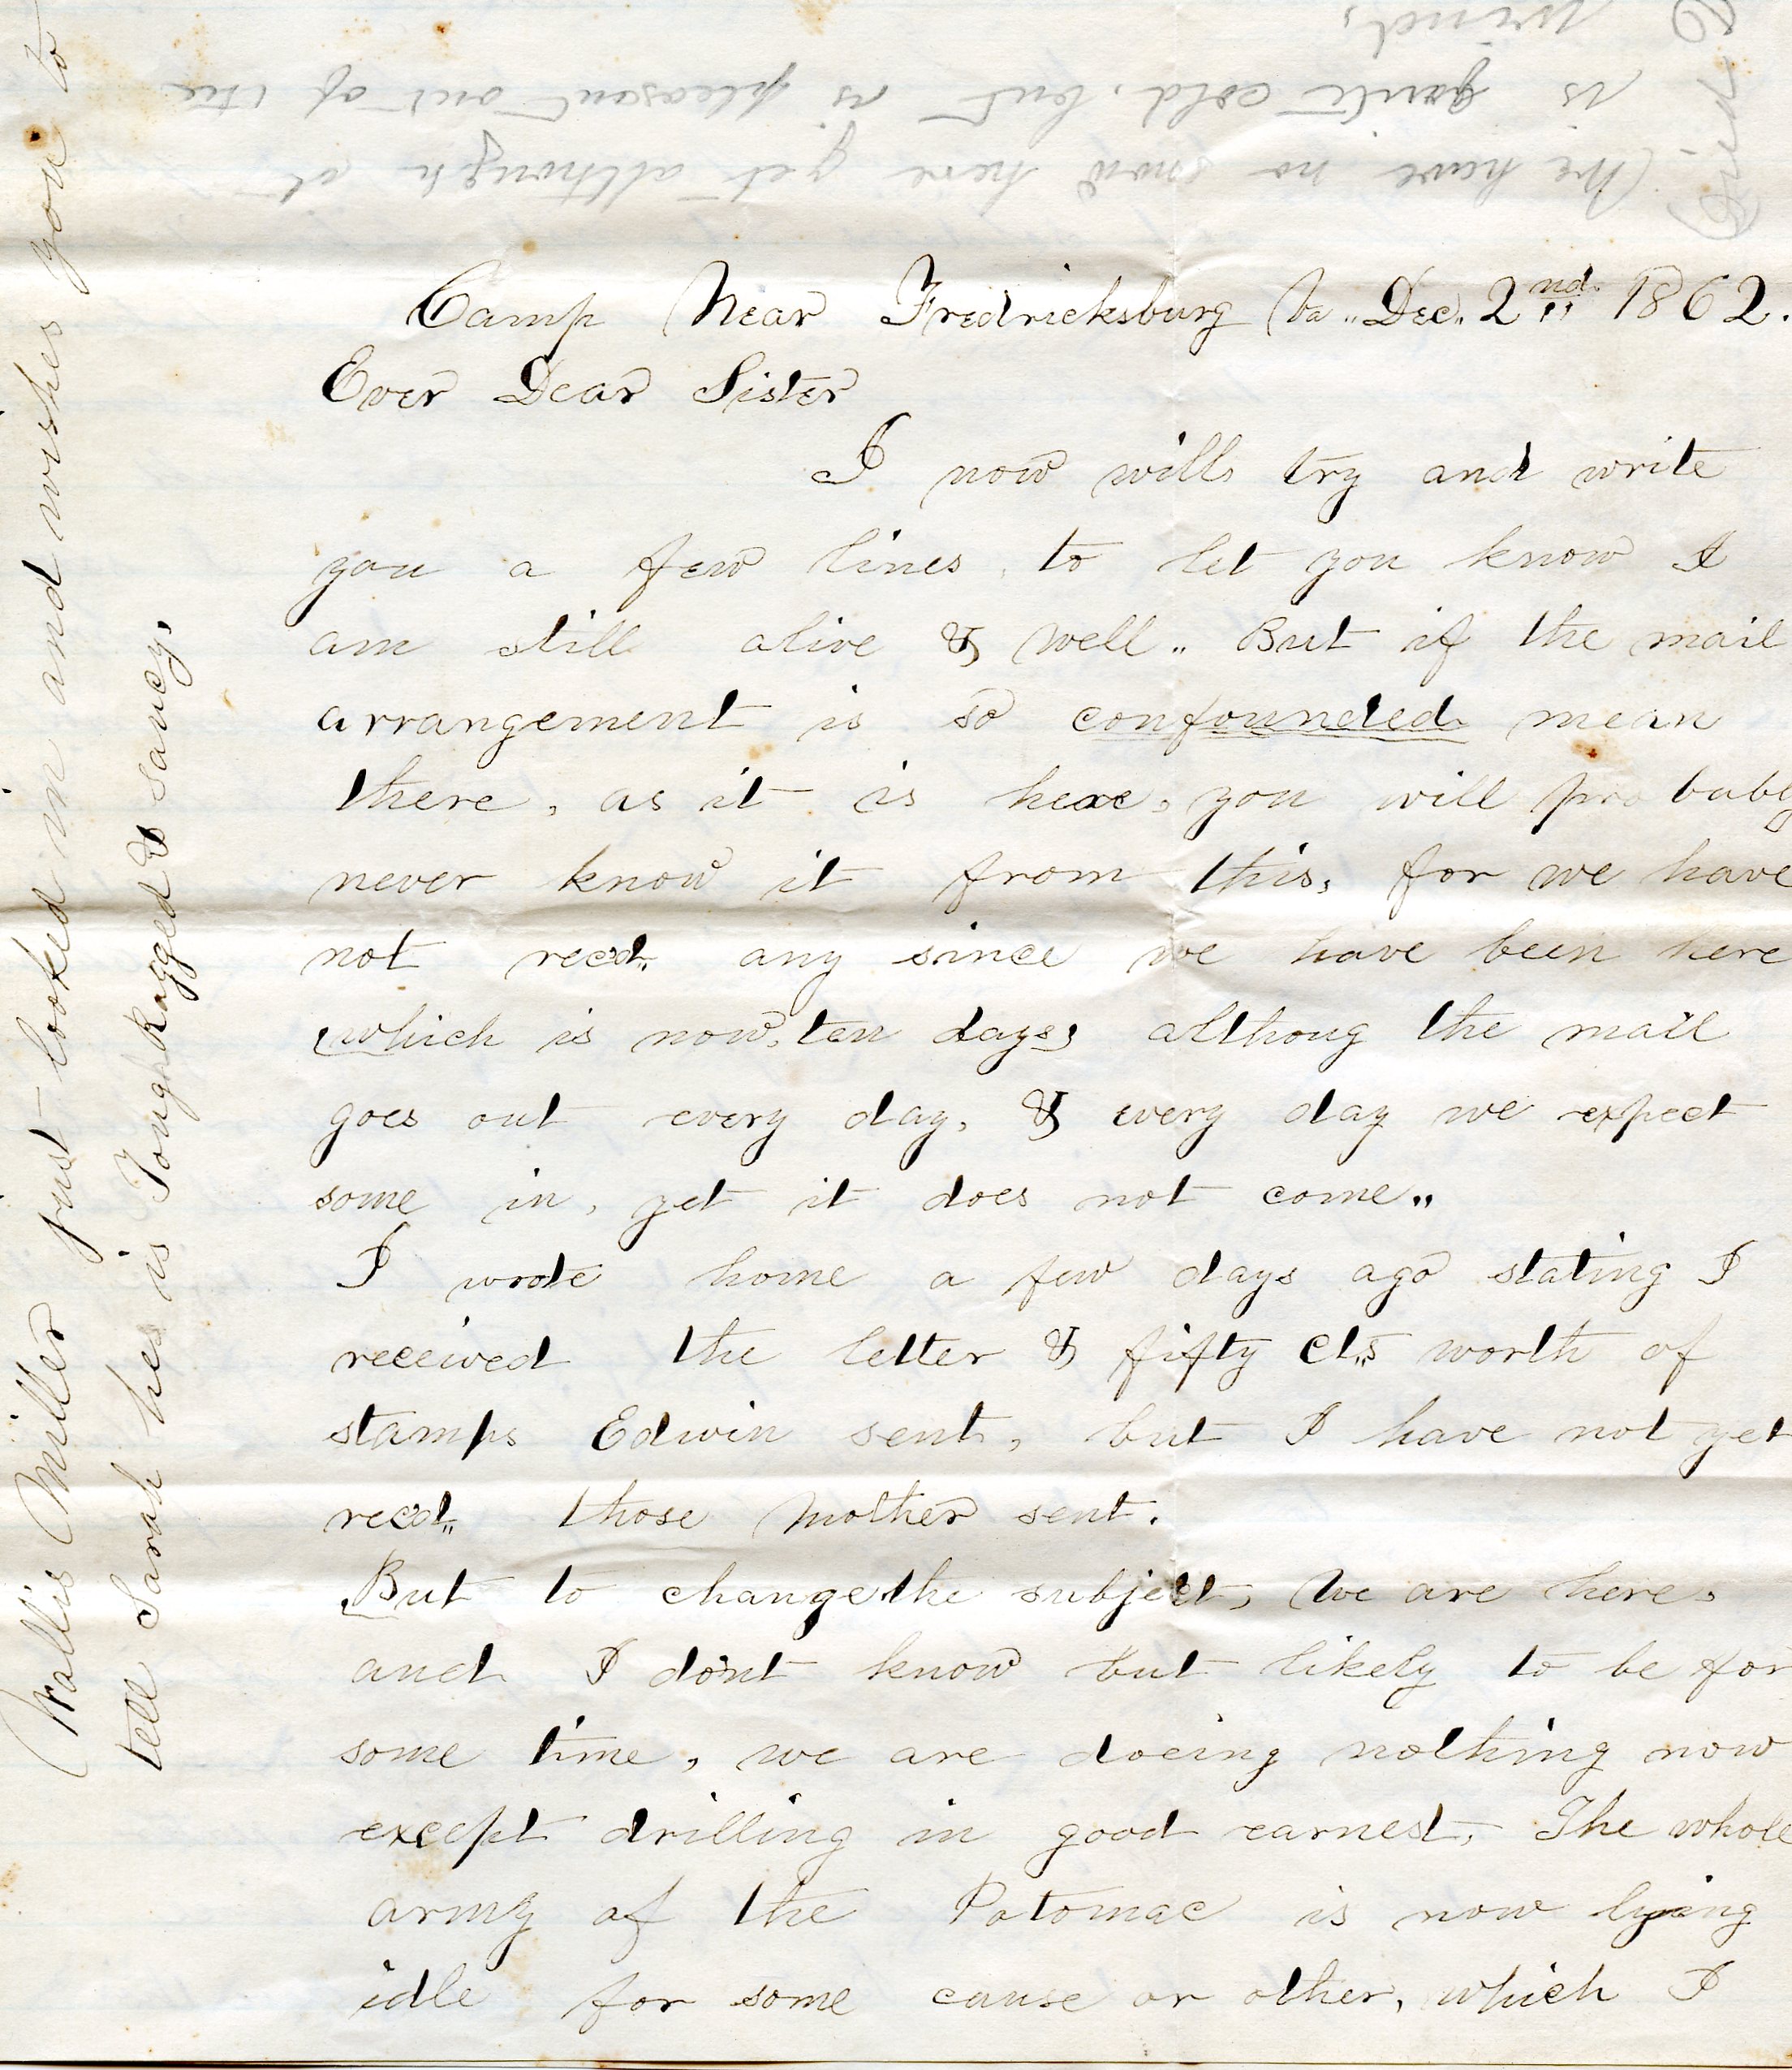 We have no snow here yet although it
is quite cold, but is pleasant out of the
wind,
Camp Near Fredricksburg Va.. Dec.. 2nd 1862.
Ever Dear Sister
I now will try and write
you a few lines to let you know I
am still alive & well.. But if the mail
arrangement is so confounded mean
there, as it is here, you will probaby
never know it from this, for we have
not recd. any since we have been here
(which is now, ten days) althoug the mail
goes out every day, & every day we expect
some in, yet it does not come..
I wrote home a few days ago stating I
received the letter & fifty cts worth of
stamps Edwin sent, but I have not yet
recd.. those Mother sent.
But to change the subject, We are here
and I don't know but likely to be for
some time, we are doeing nothing now
except drilling in good earnest, The whole
army of the Potomac is now lying
idle for some cause or other, which I
Wallis Miller just looked in and wishes you to
tell Sarah hes is Tough Ragged & saucy.